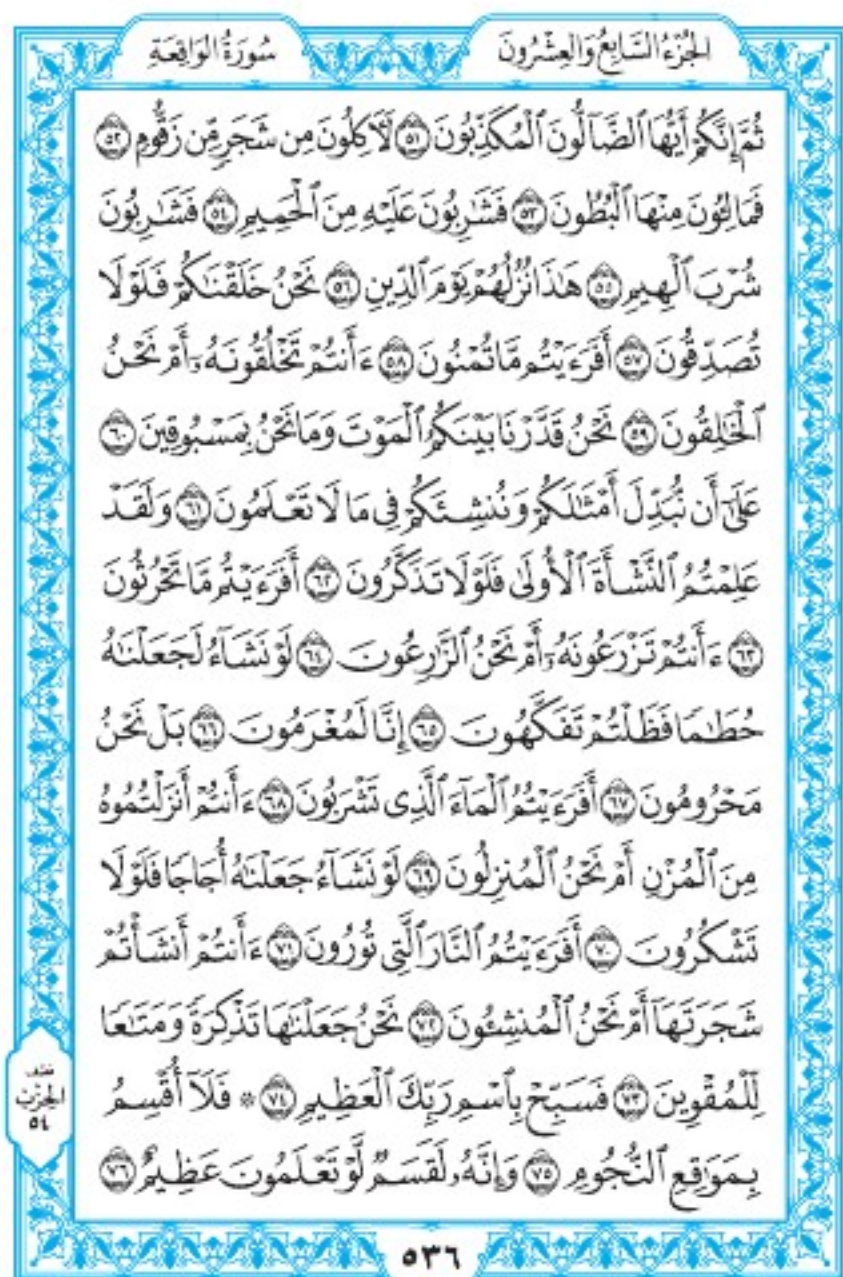 الجُزْءُ السَّابِعُ وَالعِشْرُونَ
سُورَةُ الوَاقِعَةِ
ثُمَّ إِنَّكُمْ أَيُّهَا ٱلضَّآلُّونَ ٱلْمُكَذِّبُونَ ٥١ لَأٓكِلُونَ مِن شَجَرٍ مِّن زَقُّومٍ ٥٢
فَمَالِـُٔونَ مِنْهَا ٱلْبُطُونَ ٥٣ فَشَٰرِبُونَ عَلَيْهِ مِنَ ٱلْحَمِيمِ ٥٤ فَشَٰرِبُونَ
شُرْبَ ٱلْهِيمِ ٥٥ هَٰذَا نُزُلُهُمْ يَوْمَ ٱلدِّينِ ٥٦ نَحْنُ خَلَقْنَٰكُمْ فَلَوْلَا
تُصَدِّقُونَ ٥٧ أَفَرَءَيْتُم مَّا تُمْنُونَ ٥٨ ءَأَنتُمْ تَخْلُقُونَهُۥٓ أَمْ نَحْنُ
ٱلْخَٰلِقُونَ ٥٩ نَحْنُ قَدَّرْنَا بَيْنَكُمُ ٱلْمَوْتَ وَمَا نَحْنُ بِمَسْبُوقِينَ ٦٠
عَلَىٰٓ أَن نُّبَدِّلَ أَمْثَٰلَكُمْ وَنُنشِئَكُمْ فِى مَا لَا تَعْلَمُونَ ٦١ وَلَقَدْ
عَلِمْتُمُ ٱلنَّشْأَةَ ٱلْأُولَىٰ فَلَوْلَا تَذَكَّرُونَ ٦٢ أَفَرَءَيْتُم مَّا تَحْرُثُونَ
٦٣ ءَأَنتُمْ تَزْرَعُونَهُۥٓ أَمْ نَحْنُ ٱلزَّٰرِعُونَ ٦٤ لَوْ نَشَآءُ لَجَعَلْنَٰهُ
حُطَٰمًا فَظَلْتُمْ تَفَكَّهُونَ ٦٥ إِنَّا لَمُغْرَمُونَ ٦٦ بَلْ نَحْنُ
مَحْرُومُونَ ٦٧ أَفَرَءَيْتُمُ ٱلْمَآءَ ٱلَّذِى تَشْرَبُونَ ٦٨ ءَأَنتُمْ أَنزَلْتُمُوهُ
مِنَ ٱلْمُزْنِ أَمْ نَحْنُ ٱلْمُنزِلُونَ ٦٩ لَوْ نَشَآءُ جَعَلْنَٰهُ أُجَاجًا فَلَوْلَا
تَشْكُرُونَ ٧٠ أَفَرَءَيْتُمُ ٱلنَّارَ ٱلَّتِى تُورُونَ ٧١ ءَأَنتُمْ أَنشَأْتُمْ
شَجَرَتَهَآ أَمْ نَحْنُ ٱلْمُنشِـُٔونَ ٧٢ نَحْنُ جَعَلْنَٰهَا تَذْكِرَةً وَمَتَٰعًا
لِّلْمُقْوِينَ ٧٣ فَسَبِّحْ بِٱسْمِ رَبِّكَ ٱلْعَظِيمِ ٧٤ * فَلَآ أُقْسِمُ
بِمَوَٰقِعِ ٱلنُّجُومِ ٧٥ وَإِنَّهُۥ لَقَسَمٌ لَّوْ تَعْلَمُونَ عَظِيمٌ ٧٦
الحِزْب
٥٤
٥٣٦